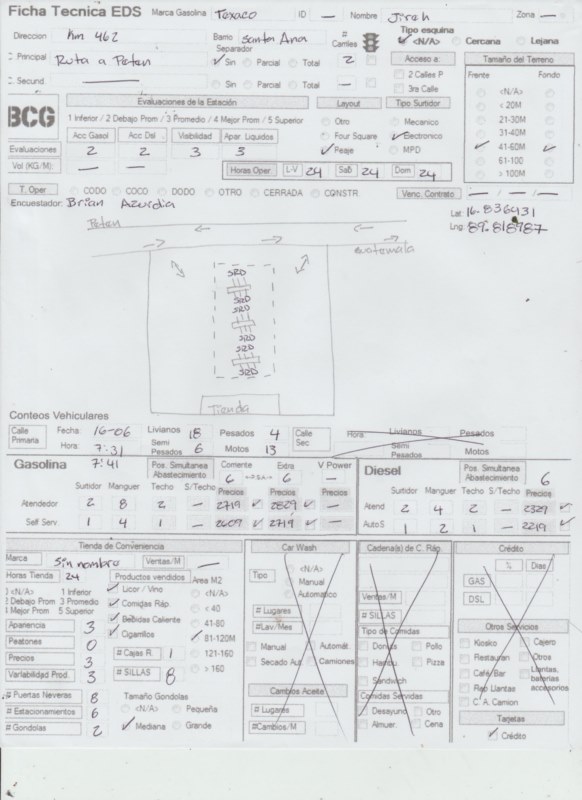 Ficha Tecnica EDS Marca Gasolina Texaco ID — Nombre Jireh Zona —
Direccion Km 462 Barrio Santa Ana # Carriles Tipo esquina <N/A> Cercana Lejana
Separador
Principal Ruta a Peten Sin Parcial Total 2 Acceso a: Tamaño del Terreno
Secund. — Sin Parcial Total — 2 Calles P Frente Fondo
3ra Calle <N/A>
< 20M
21-30M
31-40M
41-60M
61-100
> 100M
BCG Evaluaciones de la Estación Layout Tipo Surtidor
1 Inferior / 2 Debajo Prom / 3 Promedio / 4 Mejor Prom / 5 Superior Otro Mecanico
Acc Gasol Acc Dsl Visibilidad Apar Liquidos Four Square Electronico
Evaluaciones 2 2 3 3 Peaje MPD
Vol (KG/M) — — Horas Oper L-V 24 Sab 24 Dom 24
T. Oper CODO COCO DODO OTRO CERRADA CONSTR. Venc. Contrato — / — / —
Encuestador: Brian Azurdia Lat: 16.836431
Lng: 89.818787
Peten
Guatemala
SRD
SRD
SRD
SRD
SRD
Tienda
Conteos Vehiculares
Calle Primaria Fecha: 16-06 Livianos 18 Pesados 4 Calle Sec Hora: Livianos Pesados
Hora: 7:31 Semi Pesados 6 Motos 13 Semi Pesados Motos
7:41
Gasolina Pos. Simultanea Abastecimiento Corriente 6 Extra 6 V Power — Diesel Pos. Simultanea Abastecimiento 6
Surtidor Manguer Techo S/Techo Precios Precios Precios Surtidor Manguer Techo S/Techo Precios
Atendedor 2 8 2 — 2719 2829 — Atend 2 4 2 — 2329
Self Serv. 1 4 1 — 2609 2719 — Auto S 1 2 1 — 2219
Tienda de Conveniencia Car Wash Cadena(s) de C. Ráp. Crédito
Marca Sin nombre Ventas/M — <N/A> % Dias
Horas Tienda 24 Productos vendidos Area M2 Tipo Manual Ventas/M GAS
<N/A> 1 Inferior Licor / Vino <N/A> Automatico # SILLAS DSL
2 Debajo Prom 3 Promedio Comidas Ráp < 40 # Lugares Tipo de Comidas Otros Servicios
4 Mejor Prom 5 Superior Bebidas Caliente 41-80 # Lav/Mes Donas Pollo Kiosko Cajero
Apariencia 3 Cigarrillos 81-120M Manual Automát. Hambu. Pizza Restauran Otros
Peatones 0 # Cajas R 1 121-160 Secado Aut. Camiones Sandwich Café/Bar Llantas, baterias accesorios
Precios 3 # SILLAS 8 > 160 Comidas Servidas Rep Llantas
Variabilidad Prod. 3 Cambios Aceite Desayuno Otro C. A. Camion
# Puertas Neveras 8 Tamaño Gondolas # Lugares Almuer. Cena Tarjetas
# Estacionamientos 6 <N/A> Pequeña # Cambios/M Crédito
# Gondolas 2 Mediana Grande